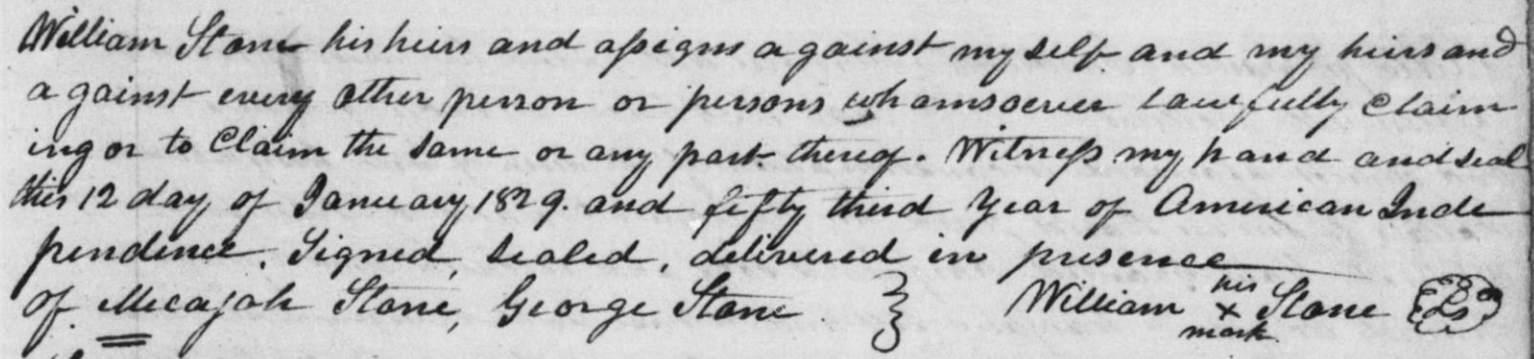 William Stone his heirs and assigns against myself and my heirs and
against every other person or persons whomsoever lawfully claim
ing or to Claim the same or any part thereof. Witness my hand and seal
this 12 day of January 1829. and fifty third Year of American Inde
pendence. Signed, sealed, delivered in presence
of Micajah Stone, George Stone } William his x mark Stone LS